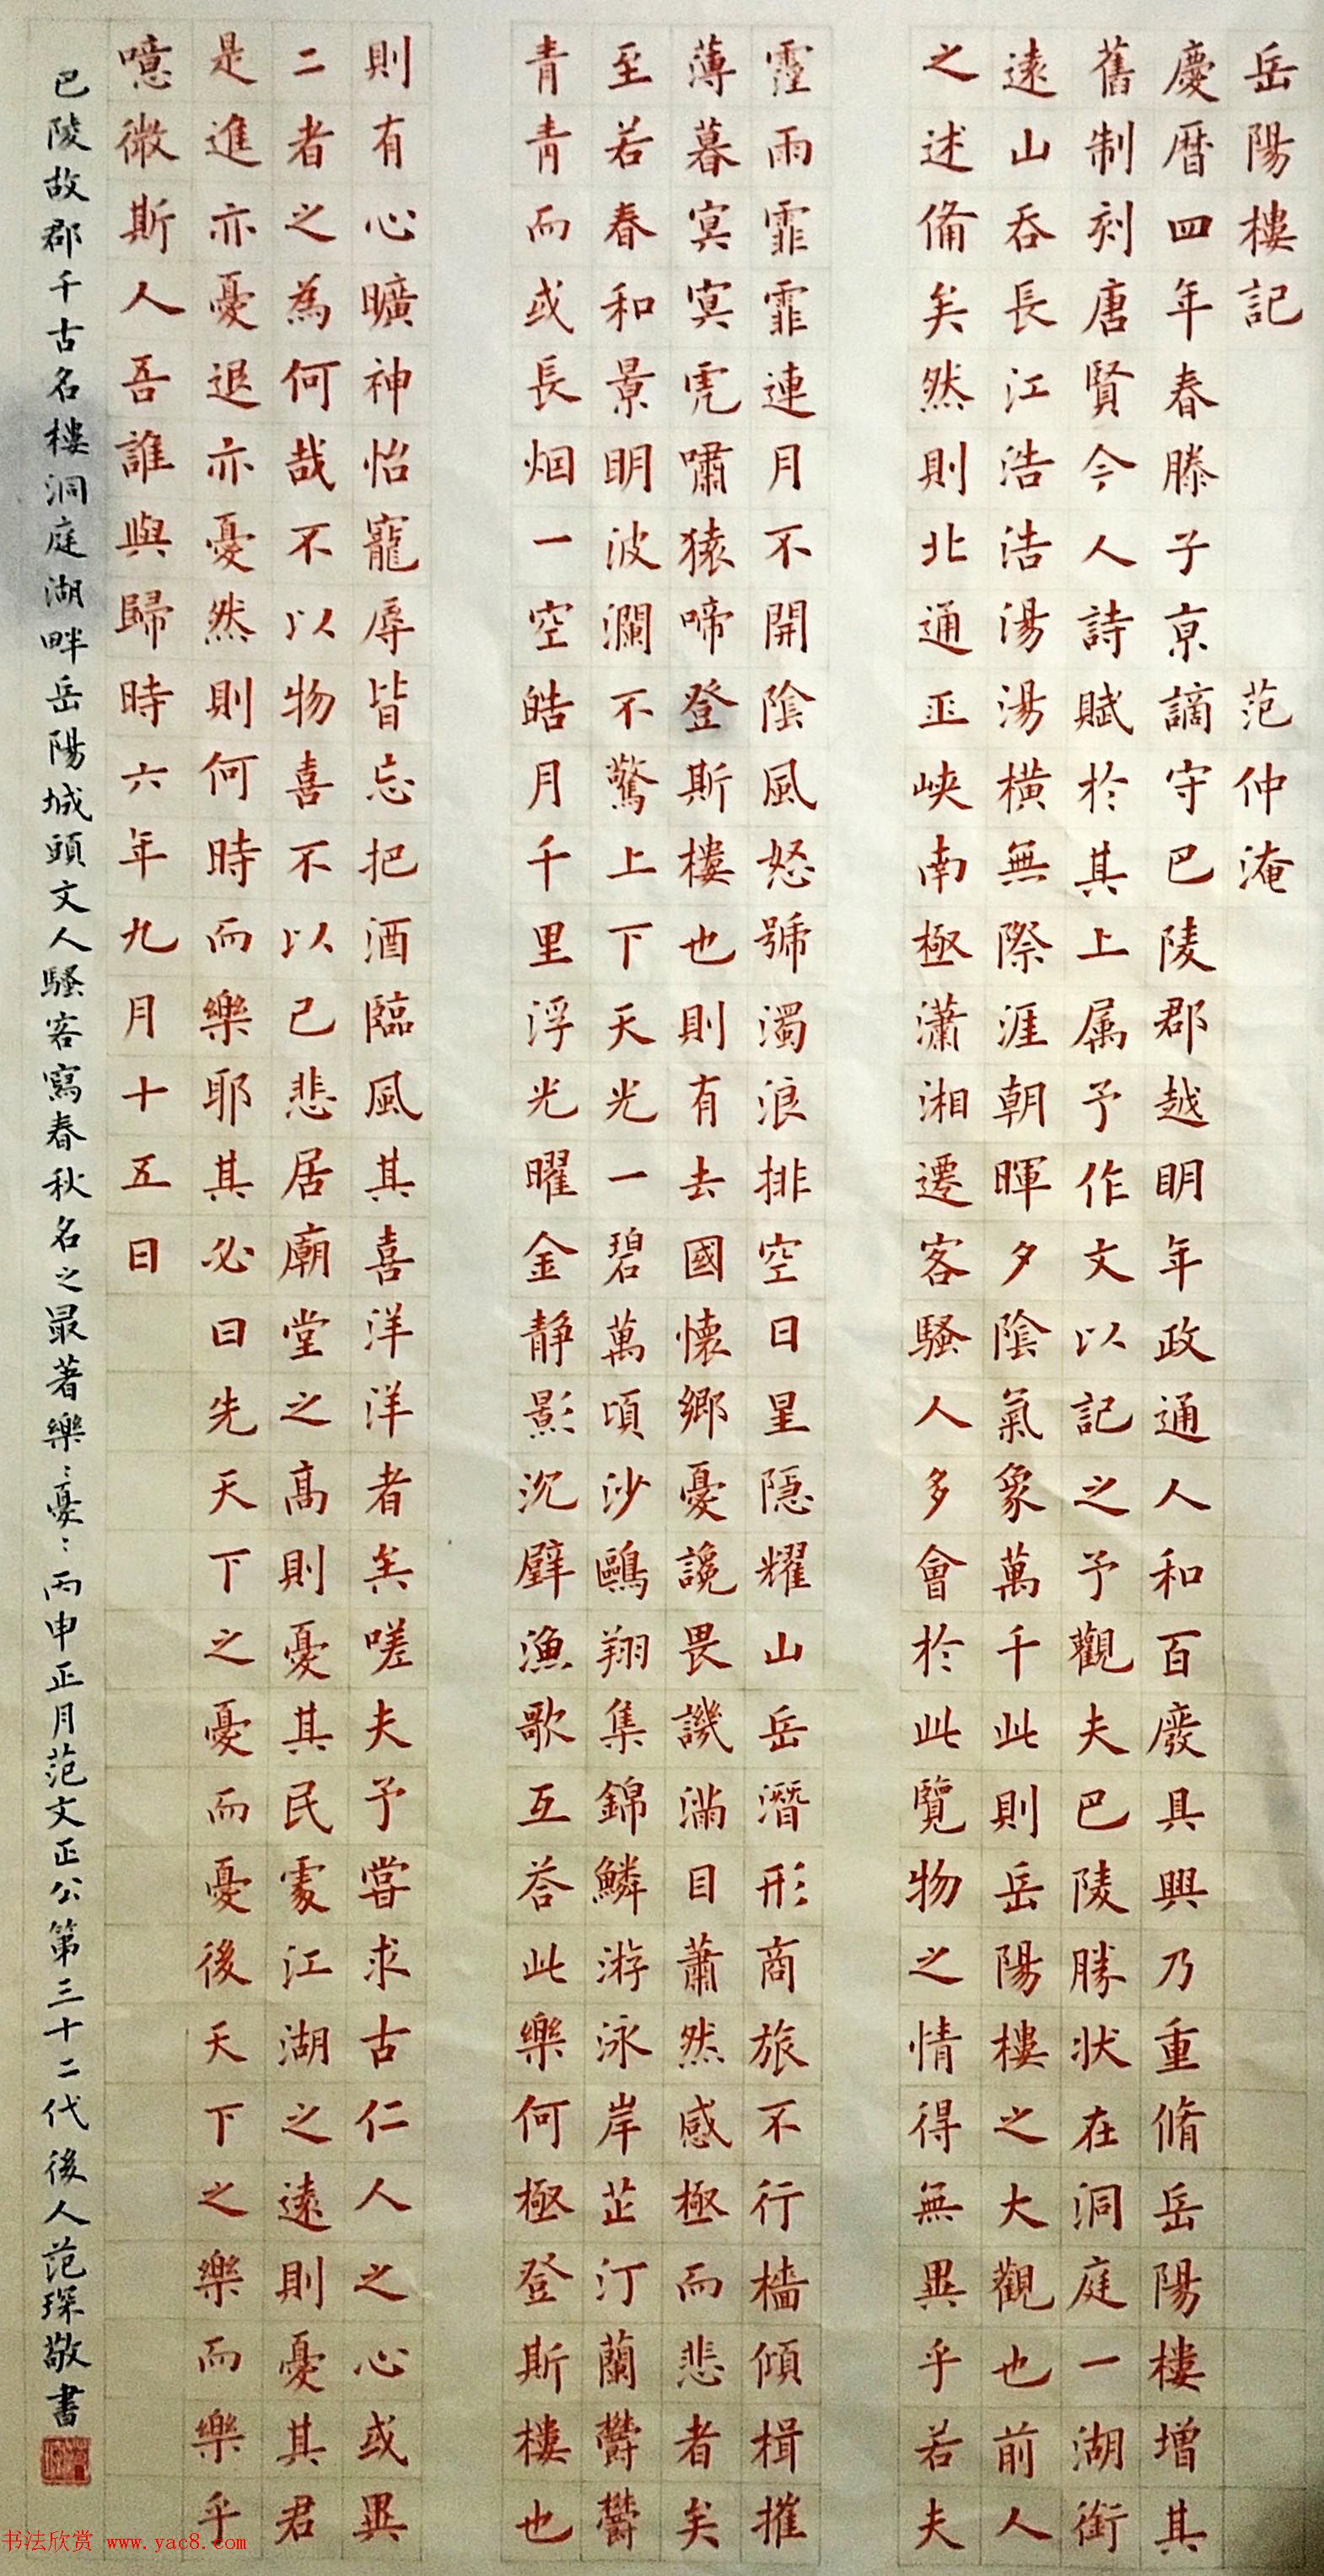 岳陽樓記 范仲淹
慶曆四年春滕子京謫守巴陵郡越明年政通人和百廢具興乃重脩岳陽樓增其
舊制刻唐賢今人詩賦於其上属予作文以記之予觀夫巴陵勝状在洞庭一湖銜
遠山吞長江浩浩湯湯横無際涯朝暉夕陰氣象萬千此則岳陽樓之大觀也前人
之述俻矣然則北通巫峡南極瀟湘遷客騷人多會於此覽物之情得無異乎若夫
霪雨霏霏連月不開陰風怒號濁浪排空日星隱耀山岳潛形商旅不行檣傾楫摧
薄暮冥冥虎嘯猿啼登斯樓也則有去國懷鄉憂讒畏譏滿目蕭然感極而悲者矣
至若春和景明波瀾不驚上下天光一碧萬頃沙鷗翔集錦鱗游泳岸芷汀蘭鬱鬱
青青而或長烟一空皓月千里浮光曜金静影沉璧漁歌互答此樂何極登斯樓也
則有心曠神怡寵辱皆忘把酒臨風其喜洋洋者矣嗟夫予嘗求古仁人之心或異
二者之為何哉不以物喜不以己悲居廟堂之高則憂其民處江湖之遠則憂其君
是進亦憂退亦憂然則何時而樂耶其必曰先天下之憂而憂後天下之樂而樂乎
噫微斯人吾誰與歸時六年九月十五日
巴陵故郡千古名樓洞庭湖畔岳陽城頭文人騷客寫春秋名之最著樂〻憂〻丙申正月范文正公第三十二代後人范琛敬書
书法欣赏 www.yac8.com